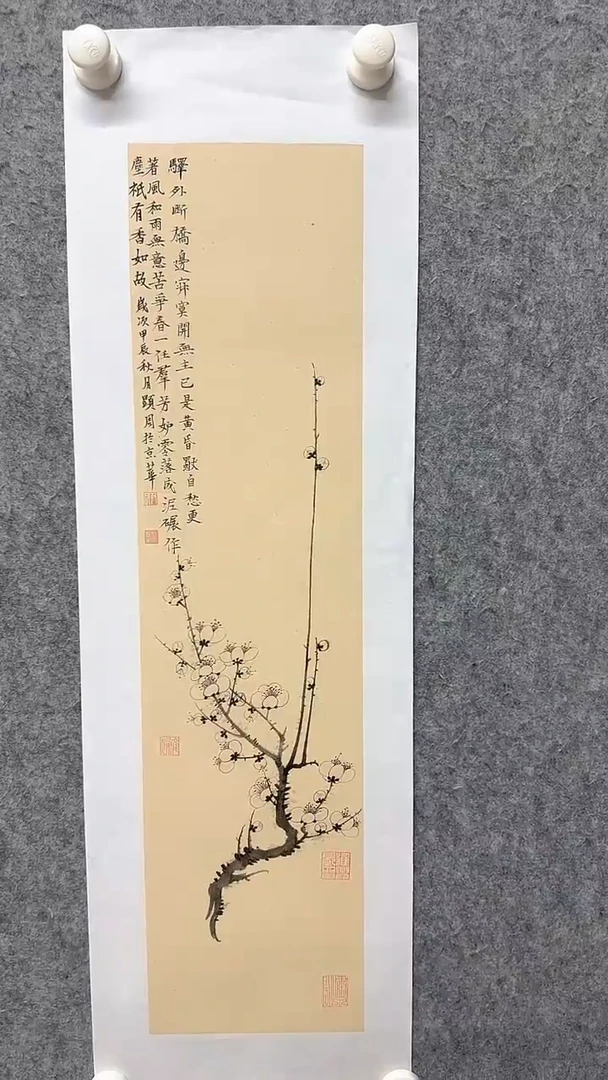 驛外斷橋邊寂寞開無主已是黃昏獸自愁更
著風和雨無意苦爭春一任羣芳妒零落成泥碾作
塵秖有香如故 歲次甲辰秋月顗周於京華